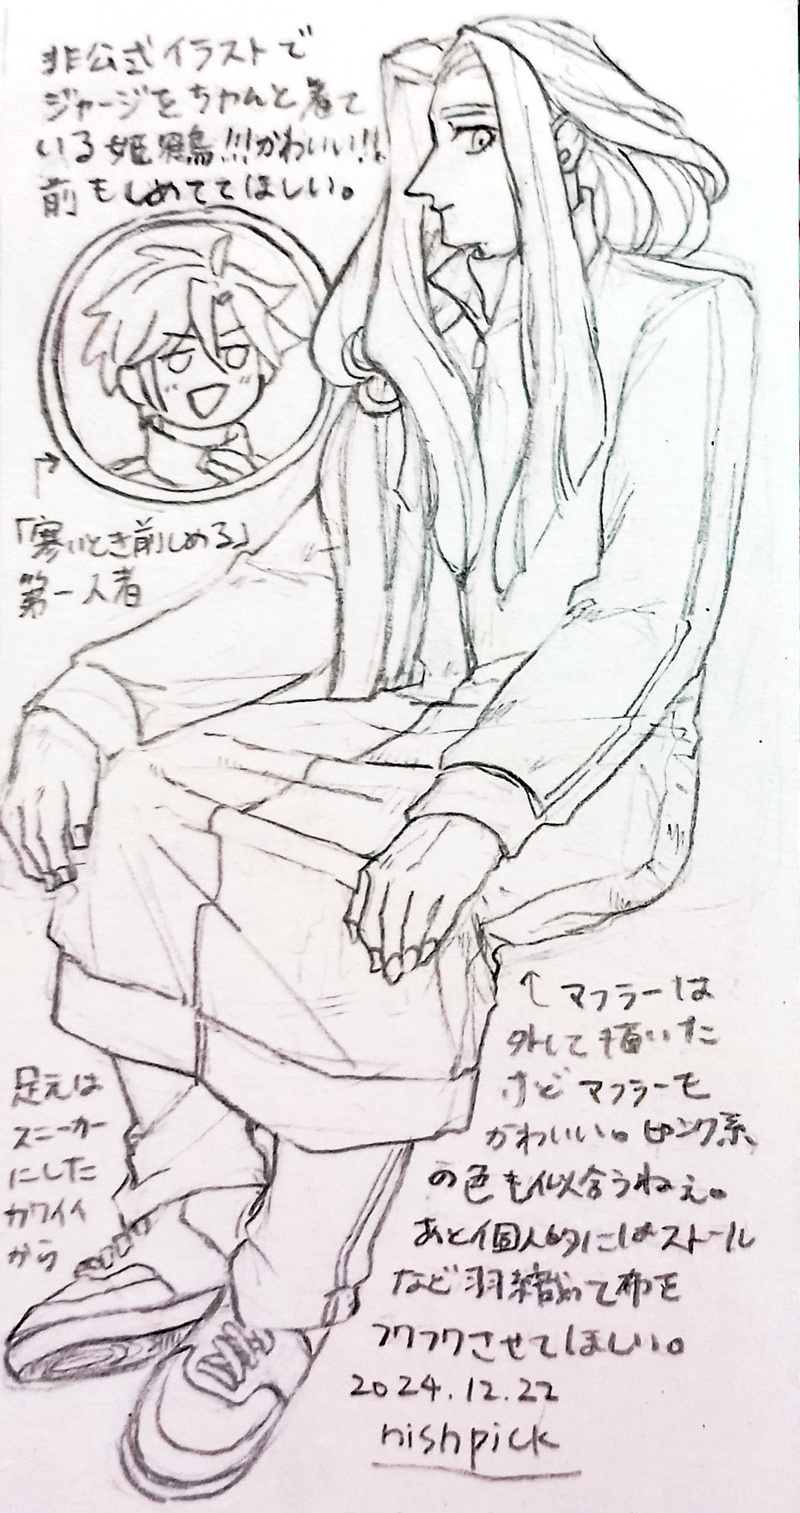 非公式イラストで
ジャージをちゃんと着て
いる姫鶴!!!かわいい!!
前もしめててほしい。
「寒いとき前しめる」
第一人者
↑マフラーは
外して描いた
けどマフラーも
かわいい。ピンク系
の色も似合うねぇ。
あと個人的にはストール
など羽織って布を
フワフワさせてほしい。
2024.12.22
nishpick
足元は
スニーカー
にした
カワイイ
から